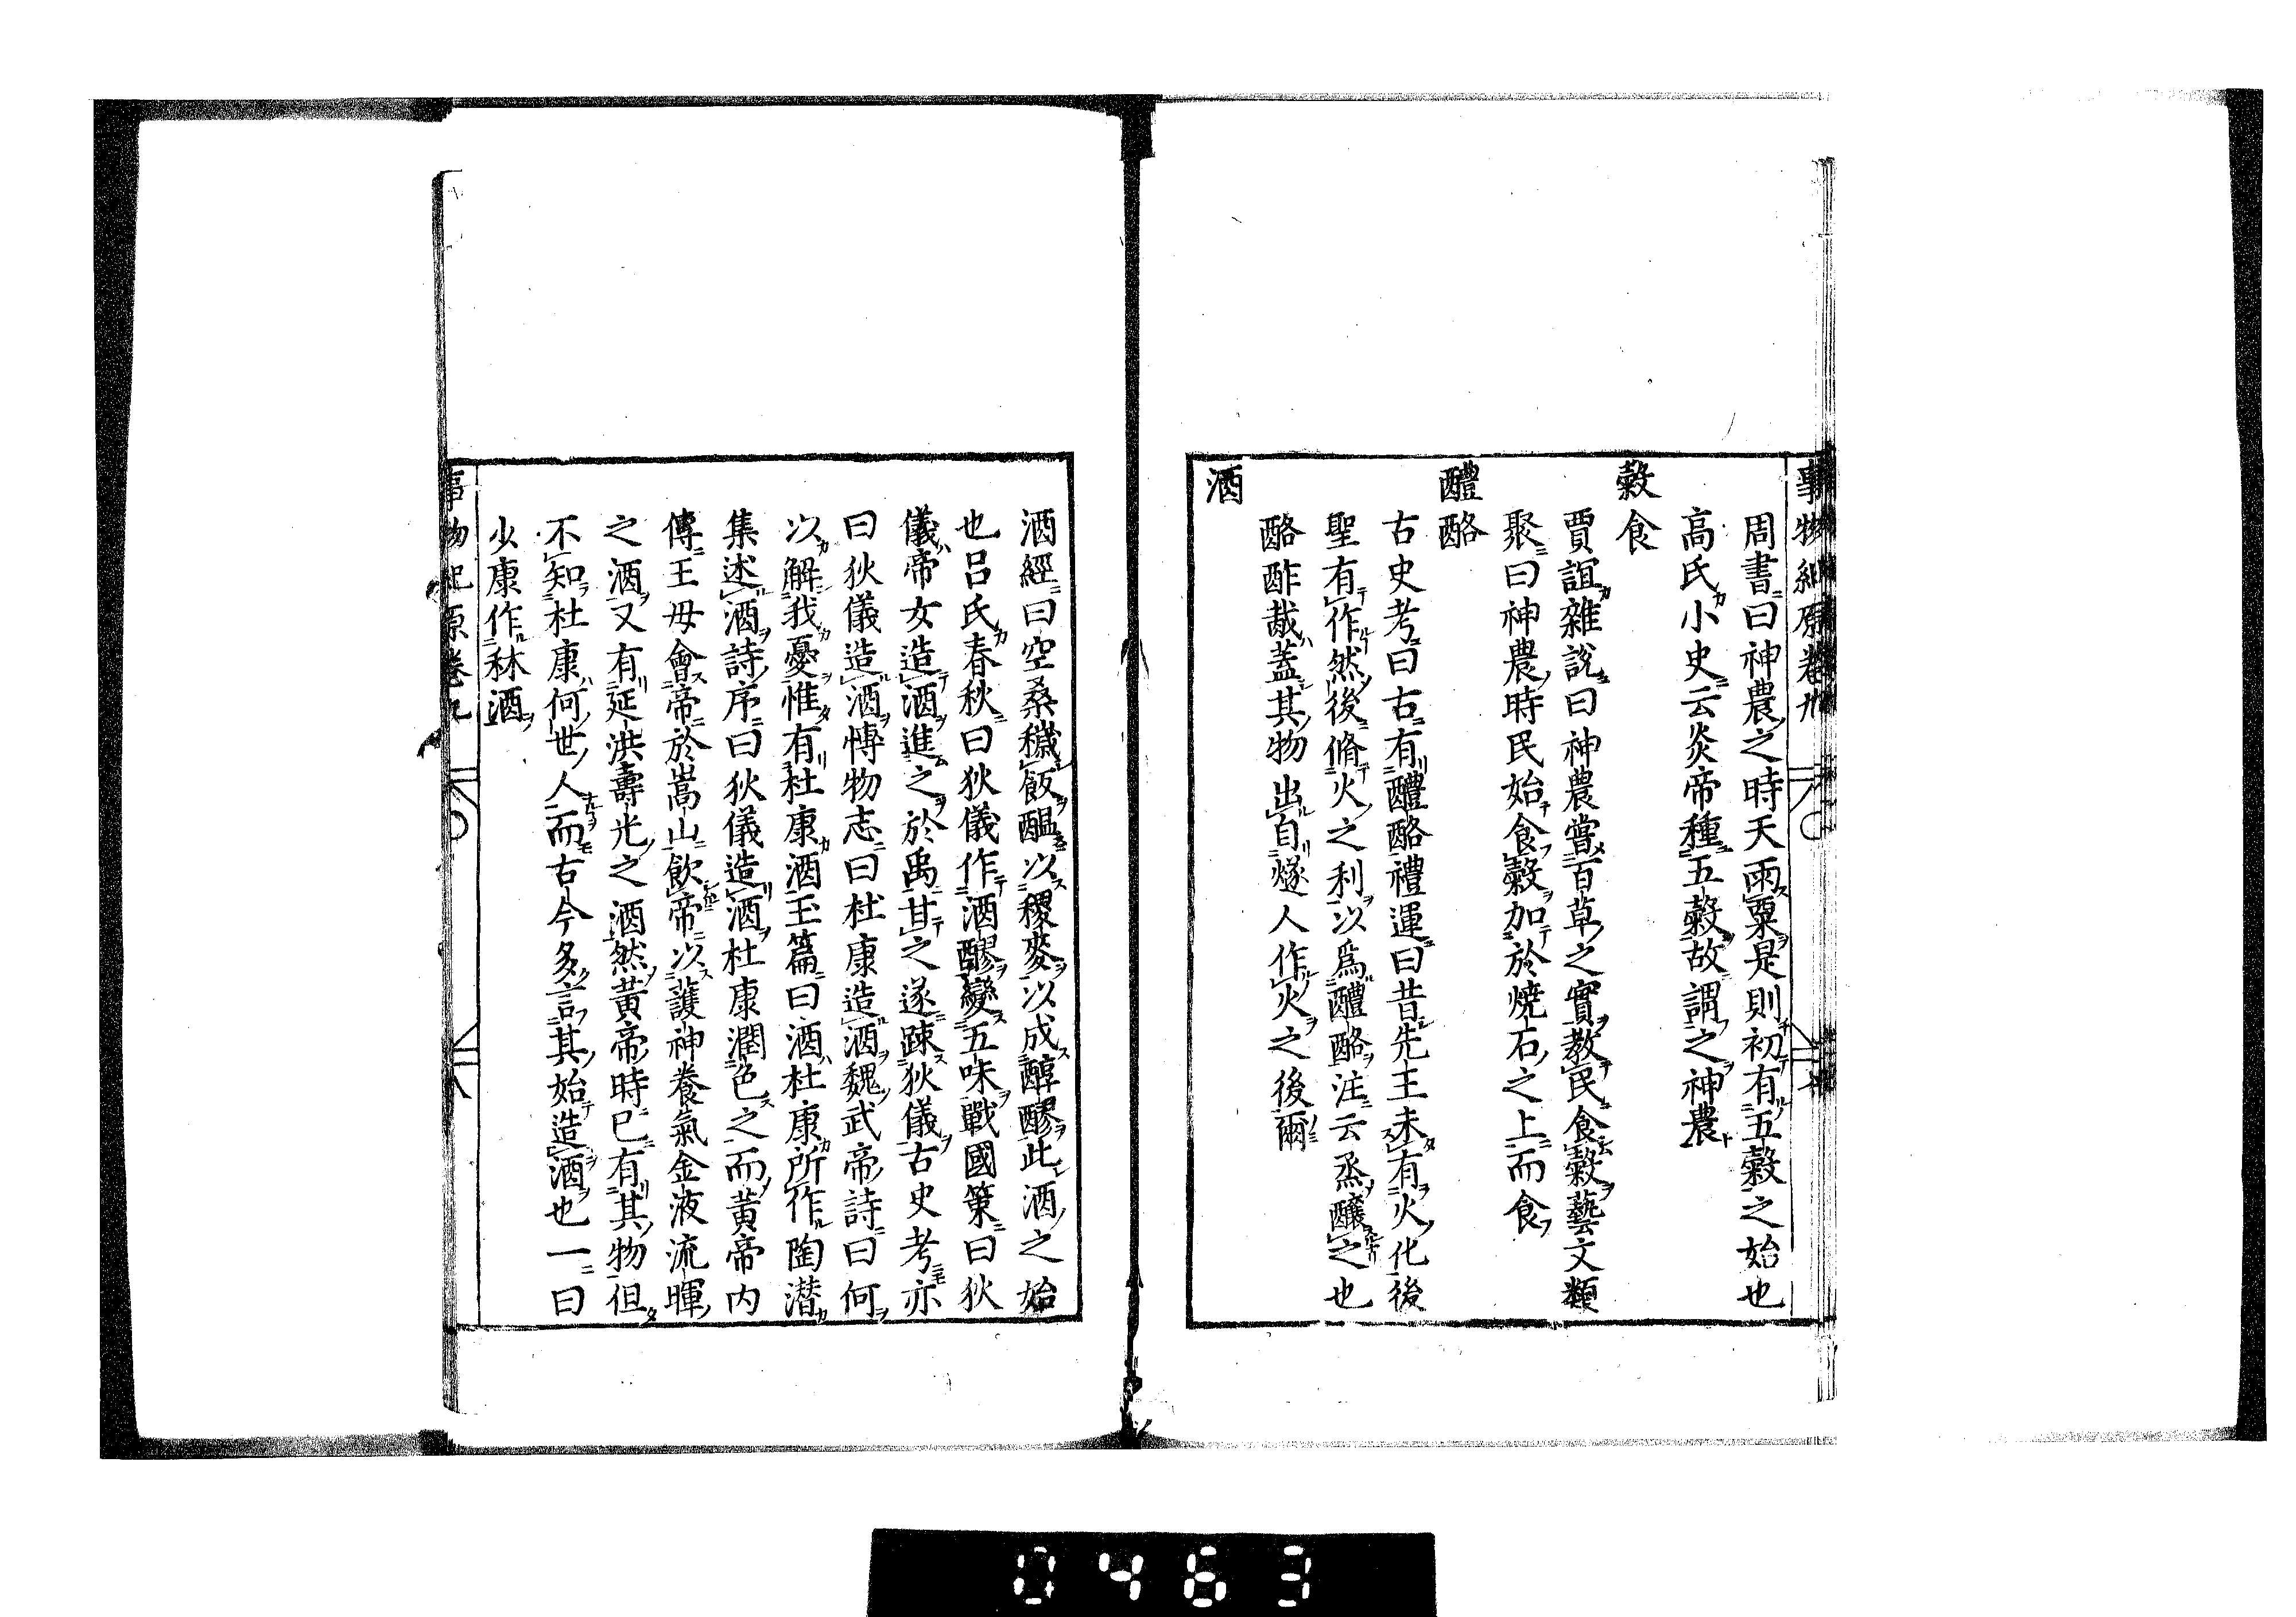 周書曰神農之時天雨粟是則初有五穀之始也
高氏小史云炎帝種五穀故謂之神農
穀食
賈誼雜說曰神農嘗百草之實教民食穀藝文類
聚曰神農時民始食穀加於燒石之上而食
醴酪
古史考曰古有醴酪禮運曰昔先王未有火化後
聖有作然後脩火之利以爲醴酪注云烝釀之也
酪酢胾蓋其物出自燧人作火之後爾
酒
酒經曰空桑穢飯醞以稷麥以成醇醪此酒之始
也呂氏春秋曰狄儀作酒醪變五味戰國策曰狄
儀帝女造酒進之於禹甘之遂踈狄儀古史考亦
曰狄儀造酒博物志曰杜康造酒魏武帝詩曰何
以解我憂惟有杜康酒玉篇曰酒杜康所作陶潜
集述酒詩序曰狄儀造酒杜康潤色之而黃帝内
傳王母會帝於嵩山飲帝以護神養氣金液流暉
之酒又有延洪壽光之酒然黃帝時已有其物但
不知杜康何世人而古今多言其始造酒也一曰
少康作秫酒
事物紀原卷九